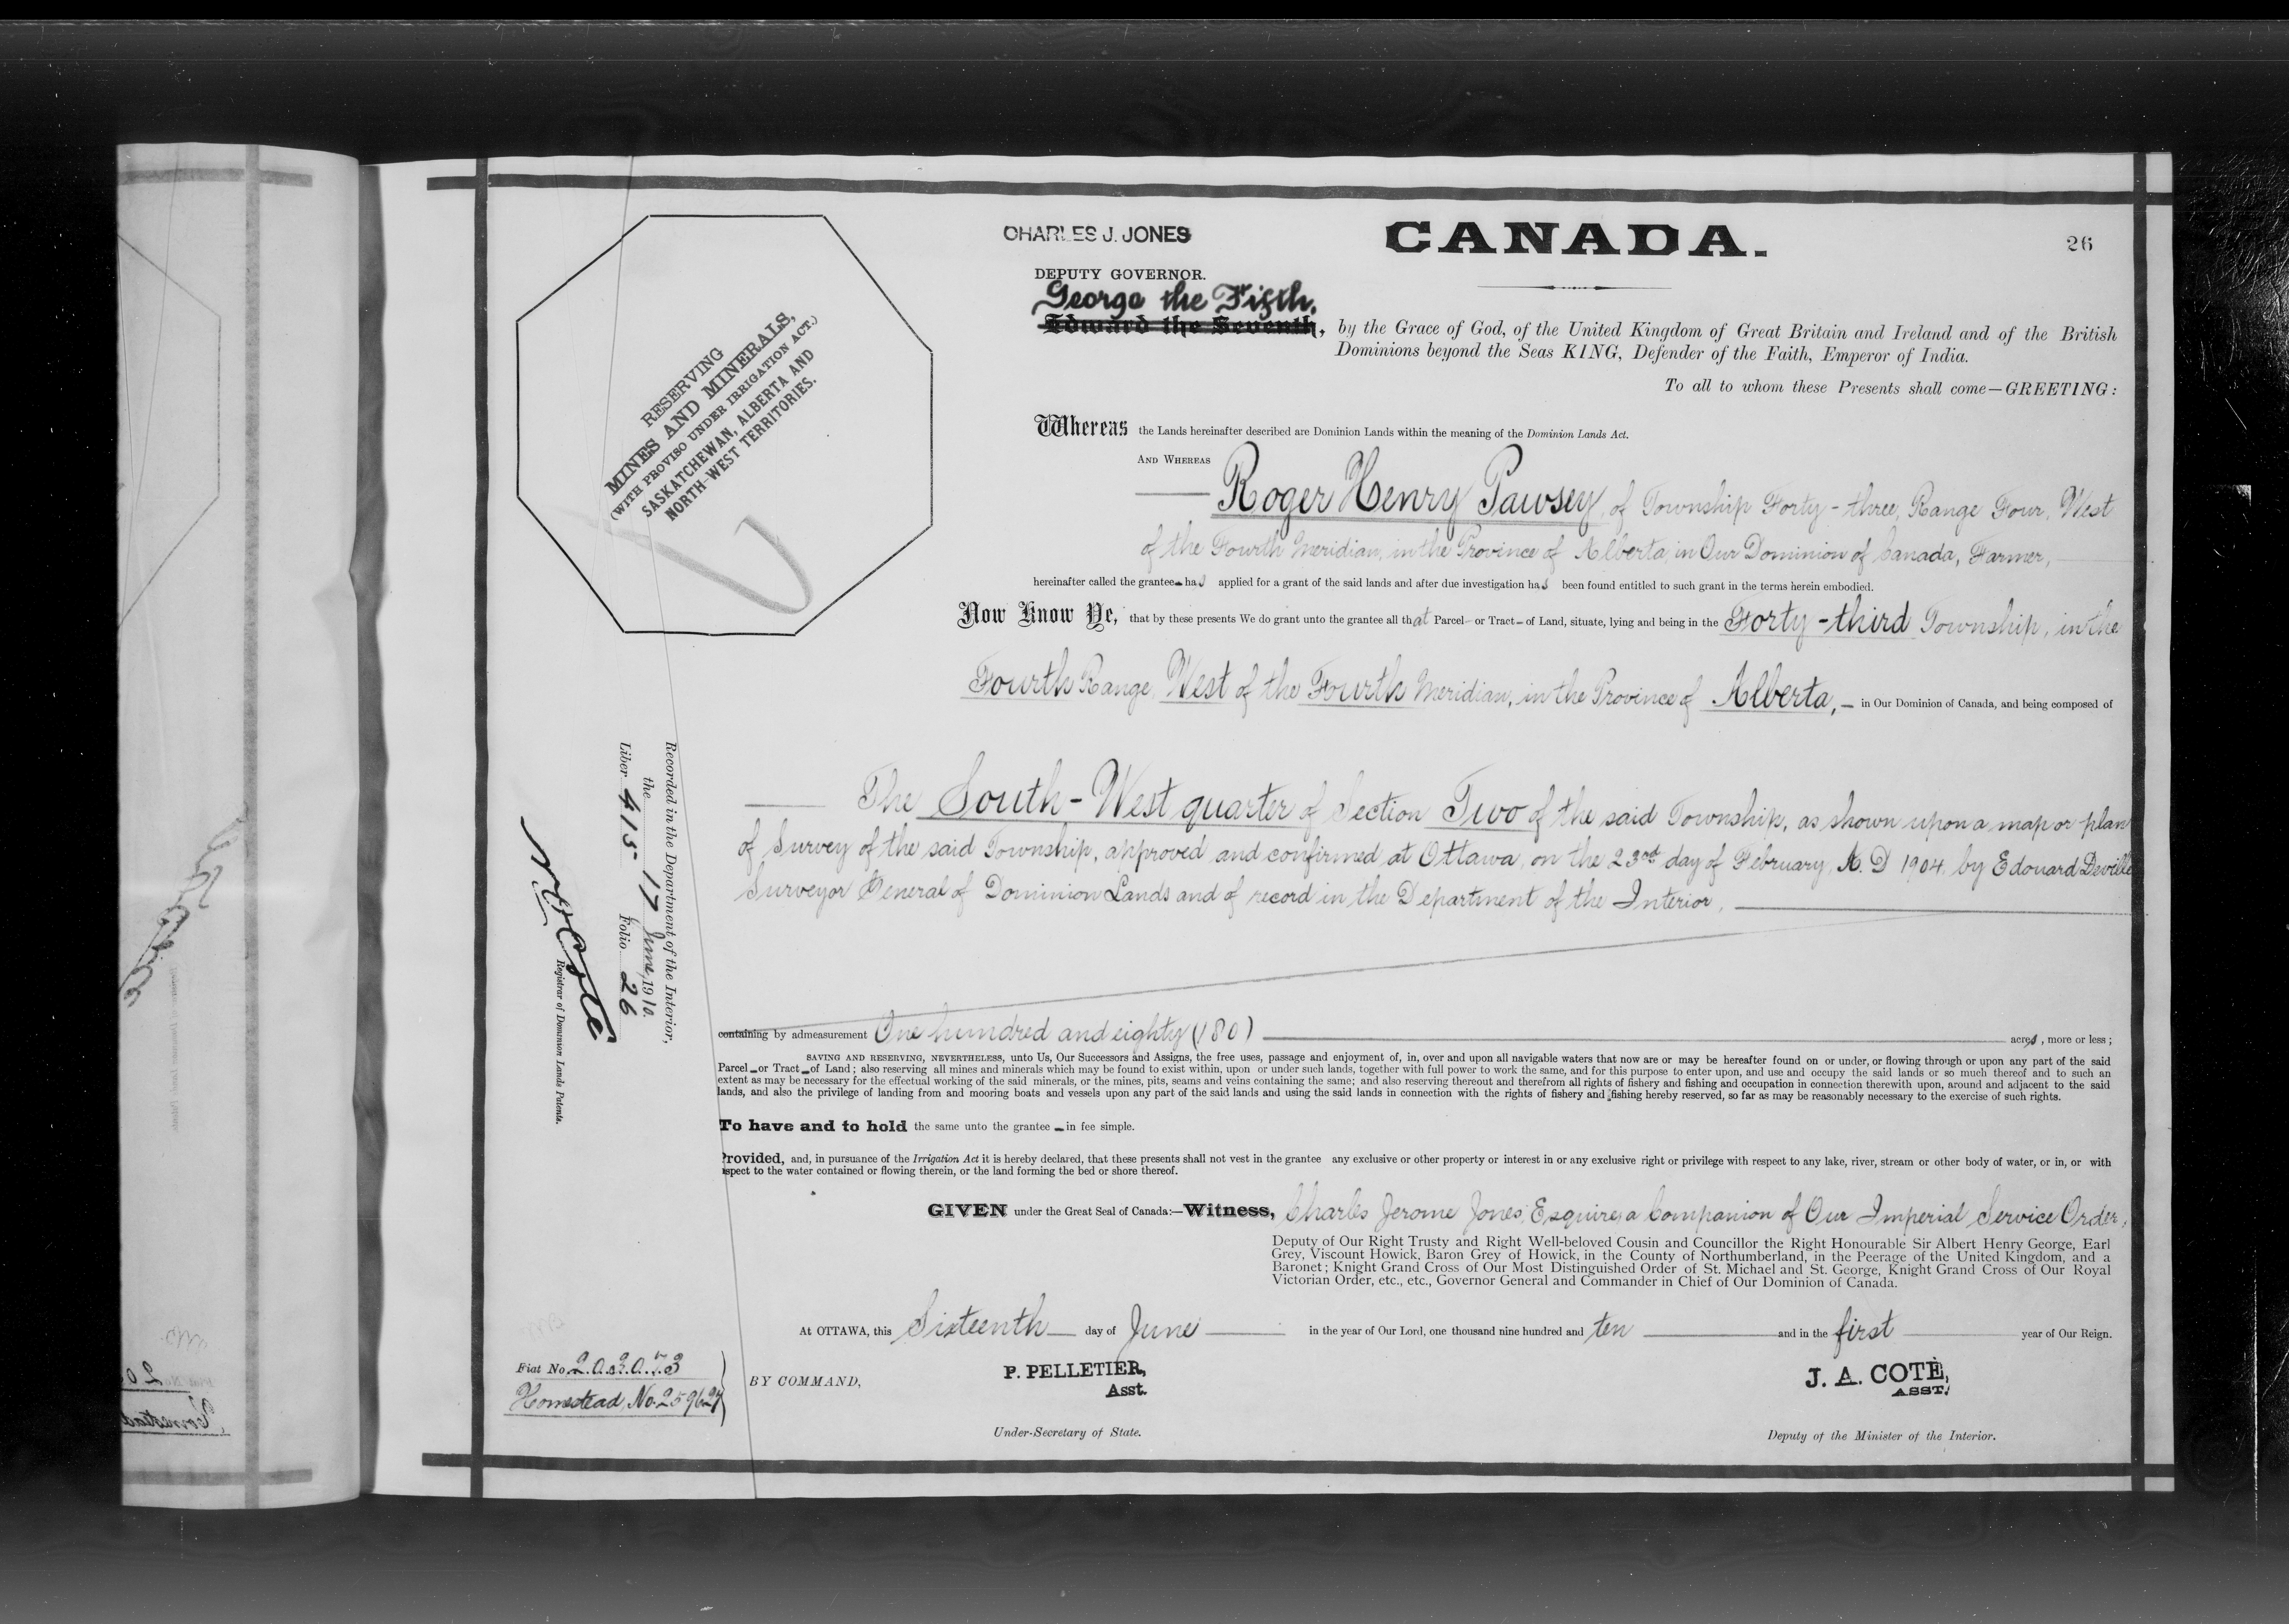 CHARLES J. JONES
CANADA.
26
DEPUTY GOVERNOR.
George the Fifth,
Edward the Seventh, by the Grace of God, of the United Kingdom of Great Britain and Ireland and of the British
Dominions beyond the Seas KING, Defender of the Faith, Emperor of India.
To all to whom these Presents shall come—GREETING:
RESERVING
MINES AND MINERALS,
(WITH PROVISO UNDER IRRIGATION ACT.)
SASKATCHEWAN, ALBERTA AND
NORTH-WEST TERRITORIES.
Whereas the Lands hereinafter described are Dominion Lands within the meaning of the Dominion Lands Act.
AND WHEREAS
Roger Henry Pawsey, of Township Forty-three, Range Four, West
of the Fourth Meridian, in the Province of Alberta, in Our Dominion of Canada, Farmer,
hereinafter called the grantee has applied for a grant of the said lands and after due investigation has been found entitled to such grant in the terms herein embodied.
Now Know Ye, that by these presents We do grant unto the grantee all that Parcel or Tract of Land, situate, lying and being in the Forty-third Township, in the
Fourth Range, West of the Fourth Meridian, in the Province of Alberta, in Our Dominion of Canada, and being composed of
The South-West quarter of Section Two of the said Township, as shown upon a map or plan
of Survey of the said Township, approved and confirmed at Ottawa, on the 23rd day of February, A.D 1904, by Edouard Deville
Surveyor General of Dominion Lands and of record in the Department of the Interior,
Recorded in the Department of the Interior,
the 17 June, 1910.
Liber 415 Folio 26
Registrar of Dominion Lands Patents.
containing by admeasurement One hundred and eighty (180) acres, more or less;
SAVING AND RESERVING, NEVERTHELESS, unto Us, Our Successors and Assigns, the free uses, passage and enjoyment of, in, over and upon all navigable waters that now are or may be hereafter found on or under, or flowing through or upon any part of the said
Parcel or Tract of Land; also reserving all mines and minerals which may be found to exist within, upon or under such lands, together with full power to work the same, and for this purpose to enter upon, and use and occupy the said lands or so much thereof and to such an
extent as may be necessary for the effectual working of the said minerals, or the mines, pits, seams and veins containing the same; and also reserving thereout and therefrom all rights of fishery and fishing and occupation in connection therewith upon, around and adjacent to the said
lands, and also the privilege of landing from and mooring boats and vessels upon any part of the said lands and using the said lands in connection with the rights of fishery and fishing hereby reserved, so far as may be reasonably necessary to the exercise of such rights.
To have and to hold the same unto the grantee in fee simple.
Provided, and, in pursuance of the Irrigation Act it is hereby declared, that these presents shall not vest in the grantee any exclusive or other property or interest in or any exclusive right or privilege with respect to any lake, river, stream or other body of water, or in, or with
respect to the water contained or flowing therein, or the land forming the bed or shore thereof.
GIVEN under the Great Seal of Canada:—Witness, Charles Jerome Jones, Esquire, a Companion of Our Imperial Service Order,
Deputy of Our Right Trusty and Right Well-beloved Cousin and Councillor the Right Honourable Sir Albert Henry George, Earl
Grey, Viscount Howick, Baron Grey of Howick, in the County of Northumberland, in the Peerage of the United Kingdom, and a
Baronet; Knight Grand Cross of Our Most Distinguished Order of St. Michael and St. George, Knight Grand Cross of Our Royal
Victorian Order, etc., etc., Governor General and Commander in Chief of Our Dominion of Canada.
At OTTAWA, this Sixteenth day of June in the year of Our Lord, one thousand nine hundred and ten and in the first year of Our Reign.
Fiat No. 203073
Homestead, No. 259627
BY COMMAND,
P. PELLETIER,
Asst.
Under-Secretary of State.
J. A. COTÉ,
ASST.
Deputy of the Minister of the Interior.